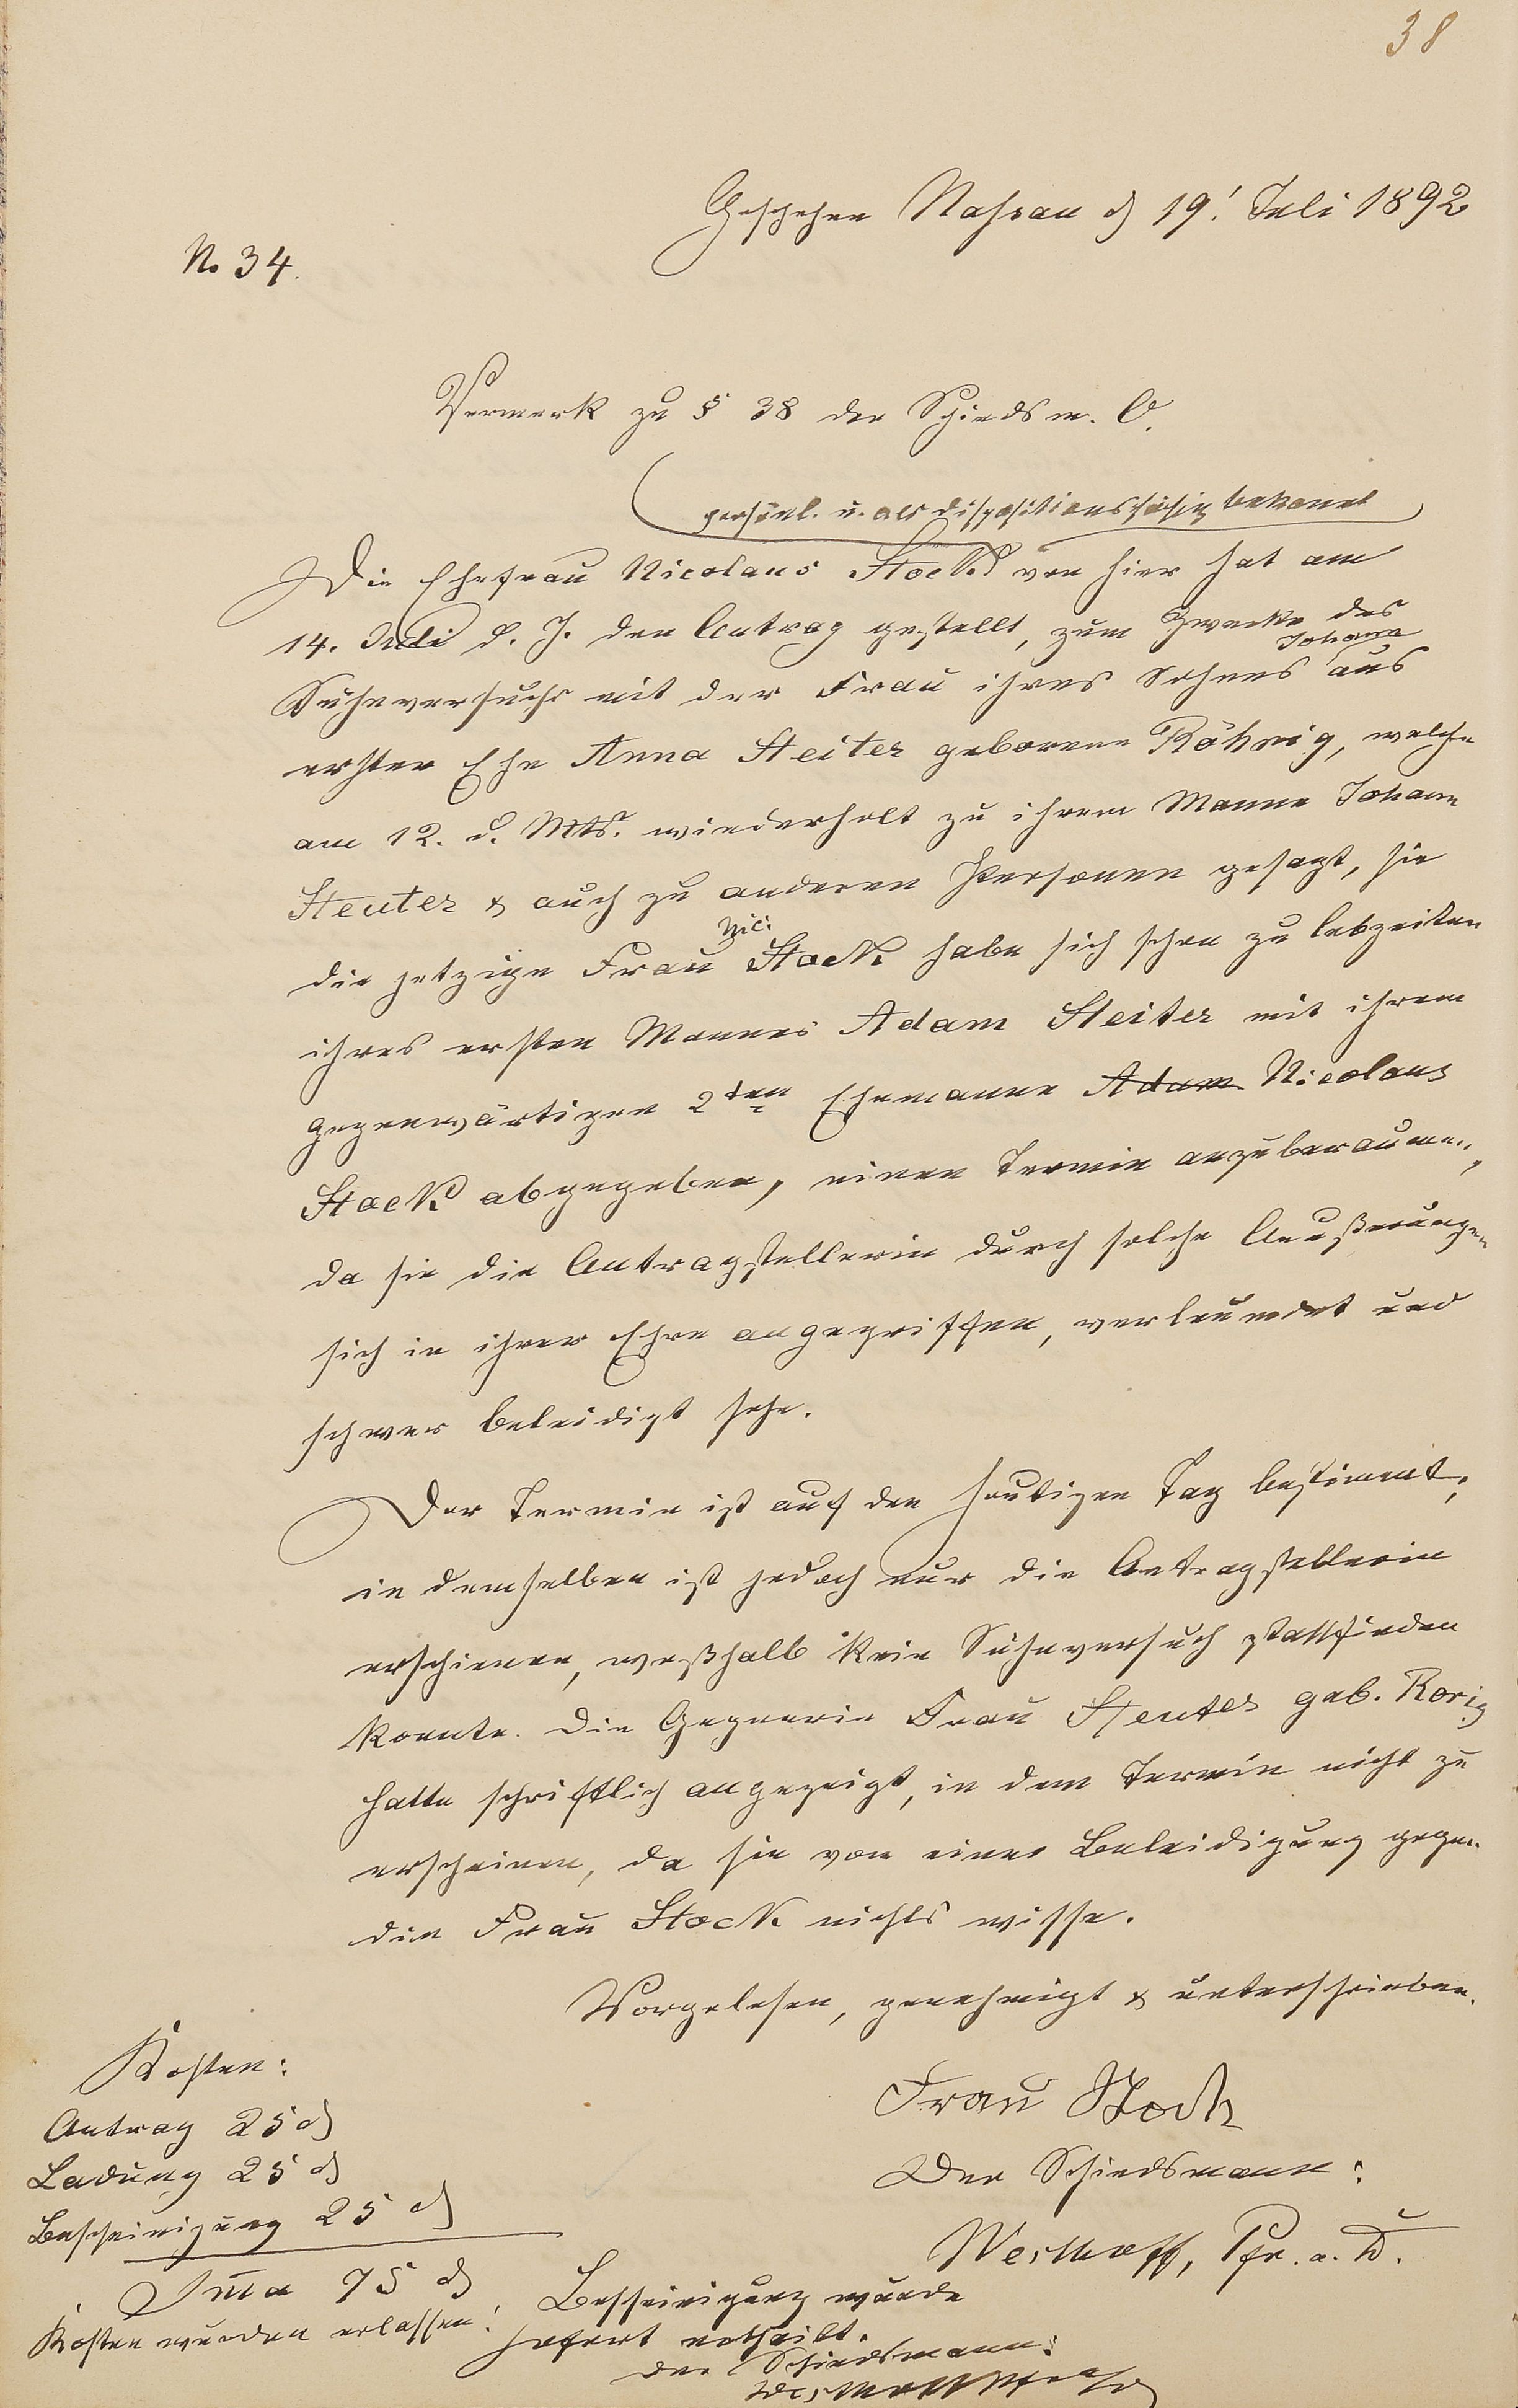 38
Geschehen Nassau d 19! Juli 1892
No 34.
Vermerk zu § 38 der Schiedsm. O.
persönl. u. als dispositionsfähig bekannt
Die Ehefrau Nicolaus Stock von hier hat am
14. Juli d. J. den Antrag gestellt, zum Zwecke des
Johann
Sühneversuchs mit der Frau ihres Sohnes aus
erster Ehe Anna Steiter geborene Röhrig, welche
am 12. d. Mts. wiederholt zu ihrem Manne Johann
Steuter & auch zu anderen Personen gesagt, sie
Nic:
die jetzige Frau Stock habe sich schon zu lebzeiten
ihres ersten Mannes Adam Steiter mit ihrem
gegenwärtigen 2ten Ehemanne Adam Nicolaus
Stock abgegeben, einen Termin anzuberaumen,
da sie die Antragstellerin durch solche Aeußerungen
sich in ihrer Ehre angegriffen, verleumdet und
schwer beleidigt sehe.
Der Termin ist auf den heutigen Tag bestimmt;
in demselben ist jedoch nur die Antragstellerin
erschienen, weßhalb kein Sühneversuch stattfinden
konnte. Die Gegnerin Frau Steuter geb. Rorig
hatte schriftlich angezeigt, in dem Termin nicht zu
erscheinen, da sie von einer Beleidigung gegen
die Frau Stock nichts wisse.
Vorgelesen, genehmigt & unterschrieben.
Frau Stock
Der Schiedsmann:
Westhoff, Pfr. a. D.
Kosten:
Antrag 25 ₰
Ladung 25 ₰
Bescheinigung 25 ₰
Sma 75 ₰
Kosten wurden erlassen!
Bescheinigung wurde
sofort ertheilt.
Der Schiedsmann:
Westhoff Pfr a D